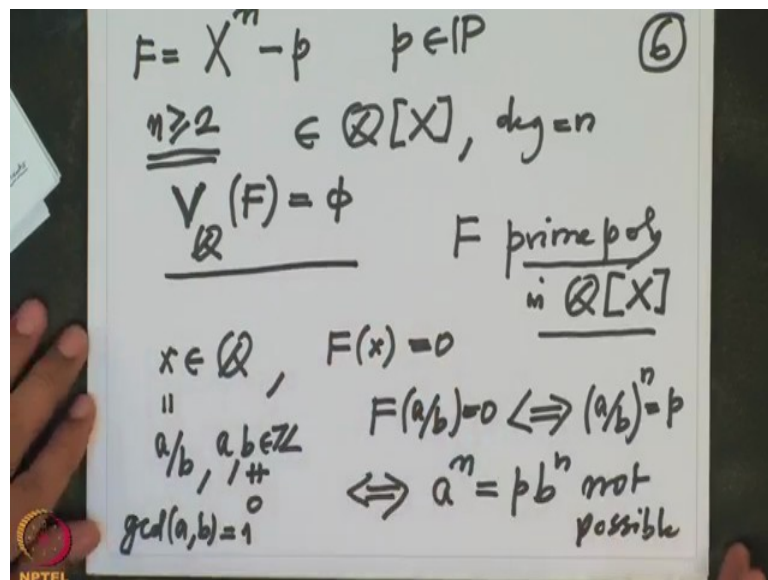 F = X^n - p   p ∈ ℙ   ⑥
n ≥ 2   ∈ ℚ[X], deg = n
V_ℚ(F) = ϕ
F prime poly
in ℚ[X]
x ∈ ℚ, F(x) = 0
=
a/b, a, b ∈ ℤ, ≠ 0   F(a/b) = 0 ⟺ (a/b)^n = p
⟺ a^n = p b^n not possible
gcd(a,b) = 1
NPTEL